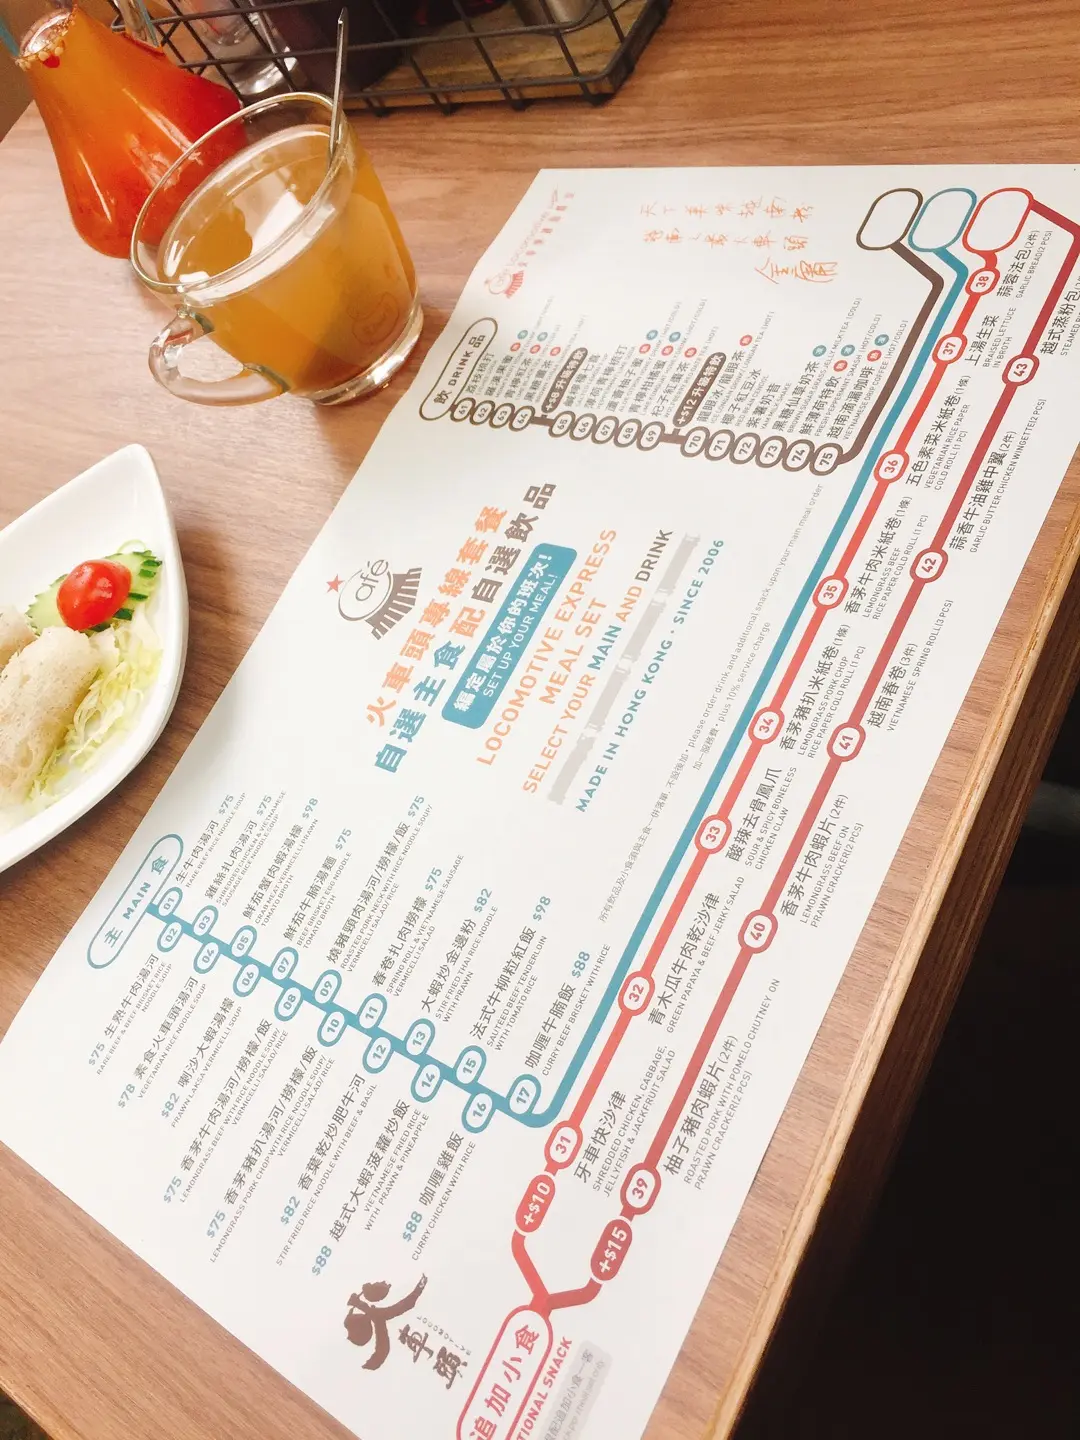 天下美味越南粉
盡車頭
飲 DRINK 品
61
62
63
64
+$8 升級特飲
65
66
67
68
69
+$12 升級特飲
70
71
72
73
74
75
龍眼冰/龍眼茶
椰子紅豆冰
RED BEAN CRUSHED ICE
紫薯奶昔
黑糖仙草奶茶
鮮薄荷特飲
FRESH PEPPERMINT SMASH (HOT/COLD)
越南滴漏咖啡
VIETNAMESE DRIP COFFEE (HOT/COLD)
Cafe
火車頭專線套餐
自選主食配自選飲品
編走屬於你的班次!
SET UP YOUR MEAL!
LOCOMOTIVE EXPRESS
MEAL SET
SELECT YOUR MAIN AND DRINK
MADE IN HONG KONG · SINCE 2006
please order drink and additional snack upon your main meal order
加一服務費 · plus 10% service charge
主 MAIN 食
01 生牛肉湯河 $75
RARE BEEF RICE NOODLE SOUP
02
$75 生熟牛肉湯河
RARE BEEF & BEEF BRISKET RICE
NOODLE SOUP
03 雞絲扎肉湯河 $75
SHREDDED CHICKEN & VIETNAMESE
SAUSAGE RICE NOODLE SOUP
04
$78 素食火車頭湯河
VEGETARIAN RICE NOODLE SOUP
05 鮮茄蟹肉蝦湯檬 $98
CRAB MEAT VERMICELLI PRAWN
TOMATO BROTH
06
$82 喇沙大蝦湯檬
PRAWN LAKSA VERMICELLI SOUP
07 鮮茄牛腩湯麵 $75
BEEF BRISKET EGG NOODLE
TOMATO BROTH
08
$75 香茅牛肉湯河/撈檬/飯
LEMONGRASS BEEF WITH RICE NOODLE SOUP/
VERMICELLI SALAD/RICE
09 燒豬頸肉湯河/撈檬/飯 $75
ROASTED PORK NECK WITH RICE NOODLE SOUP/
VERMICELLI SALAD/RICE
10
$75 香茅豬扒湯河/撈檬/飯
LEMONGRASS PORK CHOP WITH RICE NOODLE SOUP/
VERMICELLI SALAD/RICE
11 春卷扎肉撈檬 $75
SPRING ROLL & VIETNAMESE SAUSAGE
VERMICELLI SALAD
12
$82 香葉乾炒肥牛河
STIR FRIED RICE NOODLE WITH BEEF & BASIL
13 大蝦炒金邊粉 $82
STIR FRIED THAI RICE NOODLE
WITH PRAWN
14
$88 越式大蝦菠蘿炒飯
VIETNAMESE FRIED RICE
WITH PRAWN & PINEAPPLE
15 法式牛柳粒紅飯 $98
SAUTÉED BEEF TENDERLOIN
WITH TOMATO RICE
16
$88 咖喱雞飯
CURRY CHICKEN WITH RICE
17 咖喱牛腩飯 $88
CURRY BEEF BRISKET WITH RICE
火車頭
LOCOMOTIVE
追加小食
TIONAL SNACK
+$10
31 牙車快沙律
SHREDDED CHICKEN, CABBAGE,
JELLYFISH & JACKFRUIT SALAD
32 青木瓜牛肉乾沙律
GREEN PAPAYA & BEEF JERKY SALAD
33 酸辣去骨鳳爪
SOUR & SPICY BONELESS
CHICKEN CLAW
34 香茅豬扒米紙卷(1條)
LEMONGRASS PORK CHOP
RICE PAPER COLD ROLL (1 PC)
35 香茅牛肉米紙卷(1條)
LEMONGRASS BEEF
RICE PAPER COLD ROLL (1 PC)
36 五色素菜米紙卷(1條)
VEGETARIAN RICE PAPER
COLD ROLL (1 PC)
37 上湯生菜
BRAISED LETTUCE
IN BROTH
38 蒜蓉法包(2件)
GARLIC BREAD(2 PCS)
+$15
39 柚子豬肉蝦片(2件)
ROASTED PORK WITH POMELO CHUTNEY ON
PRAWN CRACKER(2 PCS)
40 香茅牛肉蝦片(2件)
LEMONGRASS BEEF ON
PRAWN CRACKER(2 PCS)
41 越南春卷(3件)
VIETNAMESE SPRING ROLL(3 PCS)
42 蒜香牛油雞中翼(2件)
GARLIC BUTTER CHICKEN WINGETTE(2 PCS)
43 越式蒸粉包
STEAMED